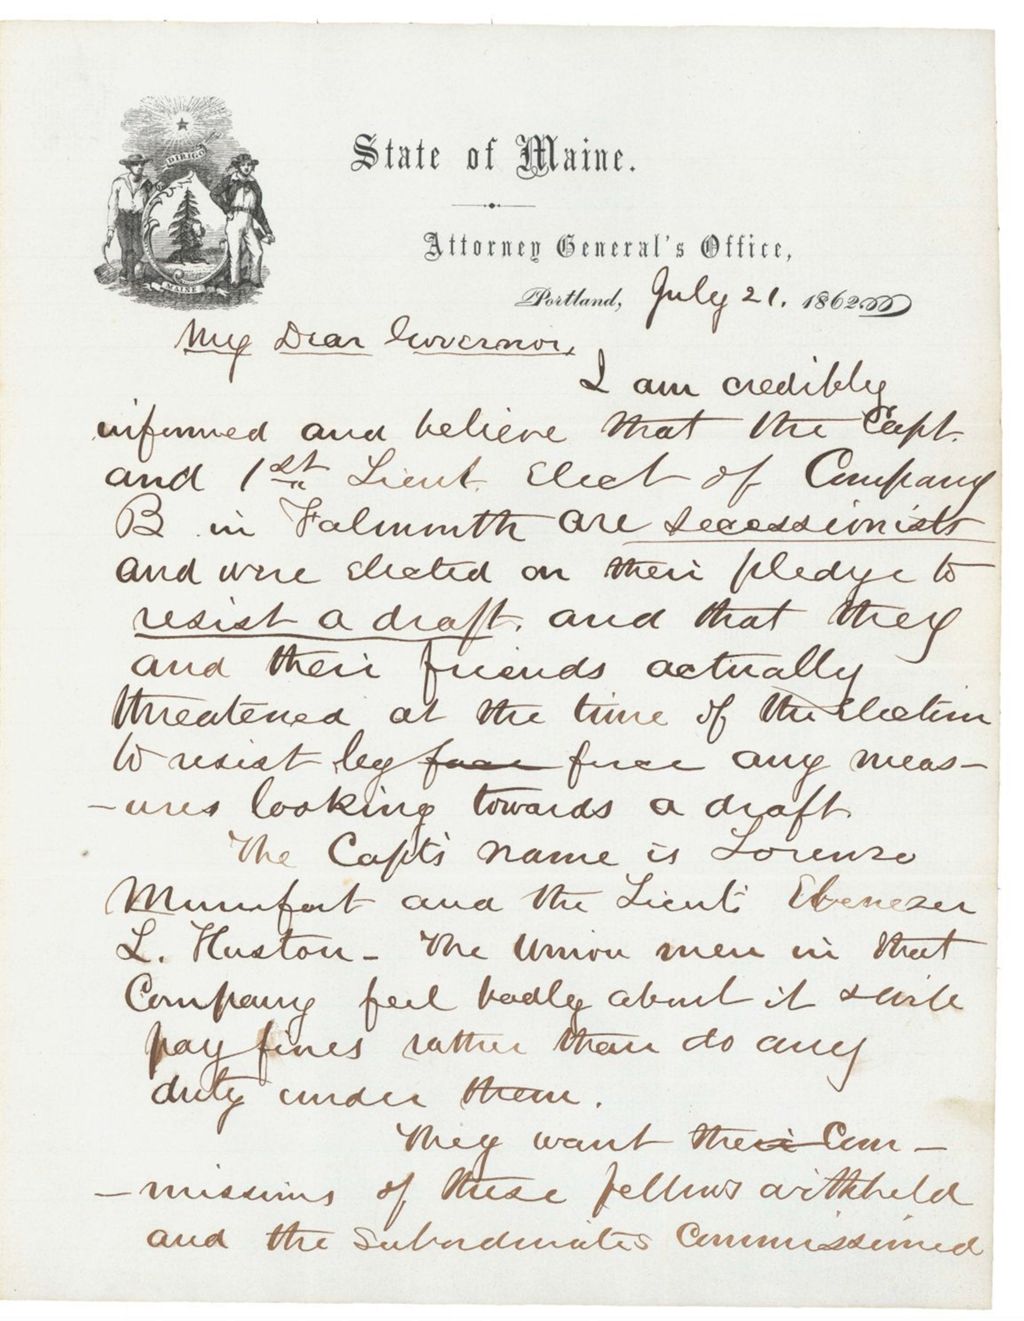 DIRIGO
MAINE
State of Maine.
Attorney General's Office,
Portland, July 21. 1862
My Dear Governor,
I am credibly
informed and believe that the Capt.
and 1st Lieut. Elect of Company
B in Falmouth are secessionists
and were elected on their pledge to
resist a draft. and that they
and their friends actually
threatened at the time of the election
to resist by force force any meas-
-ures looking towards a draft.
The Capts name is Lorenzo
Mumfort and the Lieuts Ebenezer
L. Huston - The Union men in that
Company feel badly about it & will
pay fines rather than do any
duty under them.
They want their Com-
-missions of these fellows withheld
and the subordinates Commissioned